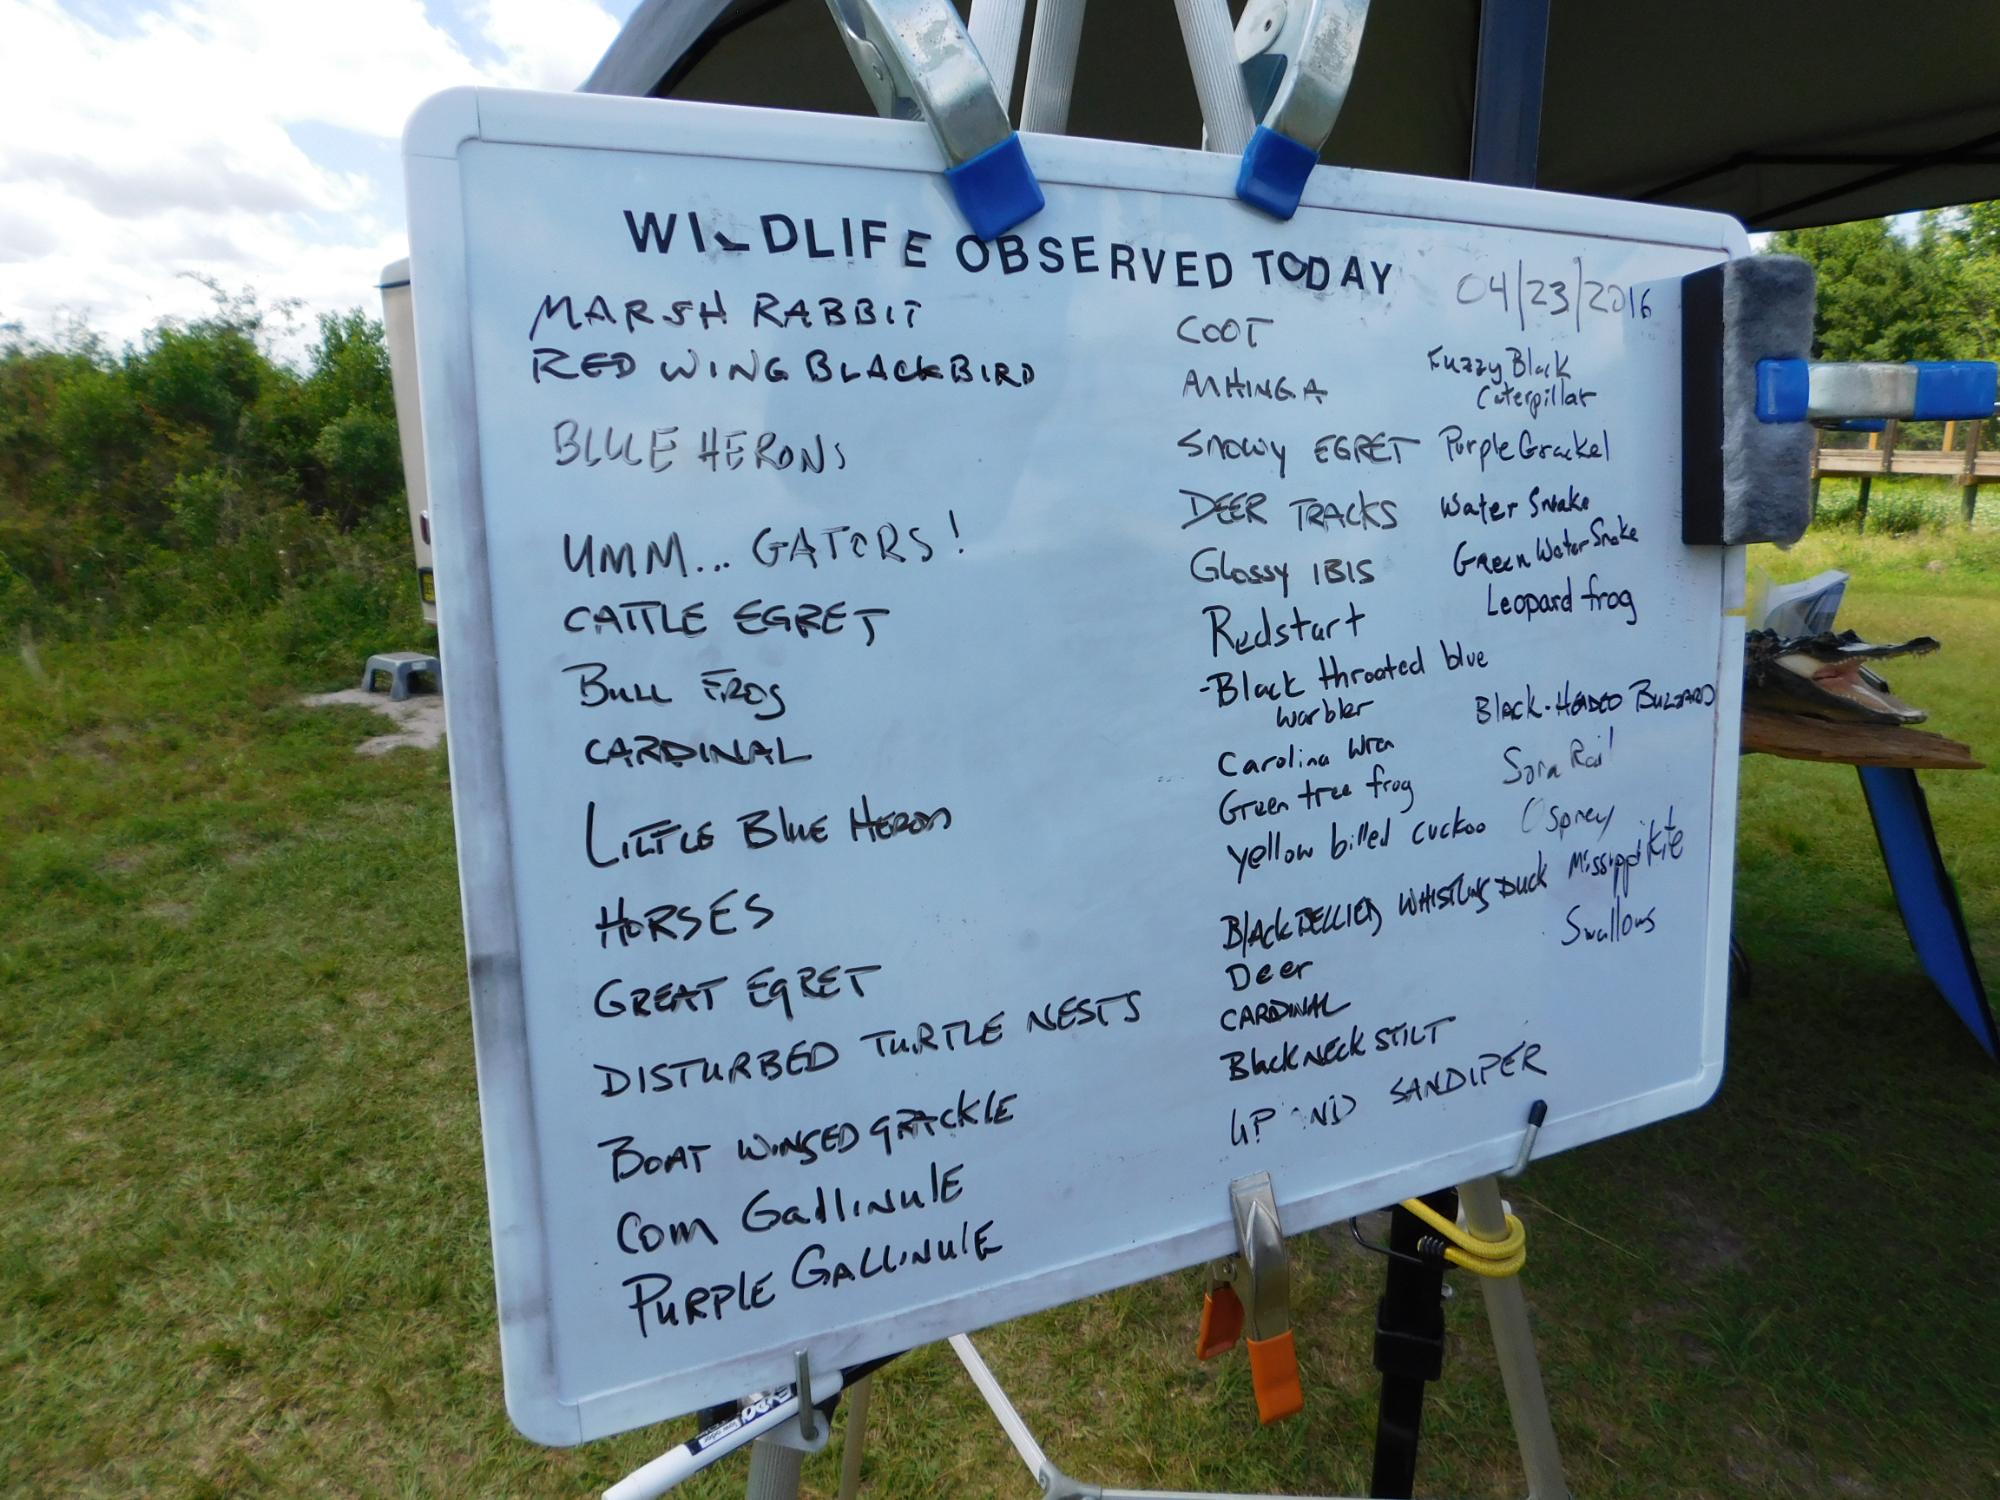 WILDLIFE OBSERVED TODAY
04/23/2016
MARSH RABBIT
RED WING BLACKBIRD
BLUE HERONS
UMM... GATORS!
CATTLE EGRET
BULL FROG
CARDINAL
LITTLE BLUE HERON
HORSES
GREAT EGRET
DISTURBED TURTLE NESTS
BOAT WINGED GRACKLE
COM GALLINULE
PURPLE GALLINULE
COOT
ANHINGA
SNOWY EGRET
DEER TRACKS
Glossy IBIS
Redstart
-Black throated blue
warbler
Carolina Wren
Green tree frog
yellow billed cuckoo
BlACK BELLIED WHISTLING DUCK
Deer
CARDINAL
BlACK NECK STILT
UP ND SANDIPER
Fuzzy Black
Caterpillar
Purple Grackel
Water Snake
Green Water Snake
Leopard frog
BLACK-HEADED BUZZARD
Sora Rail
Osprey
Mississippi Kite
Swallows
EXPO
low odor